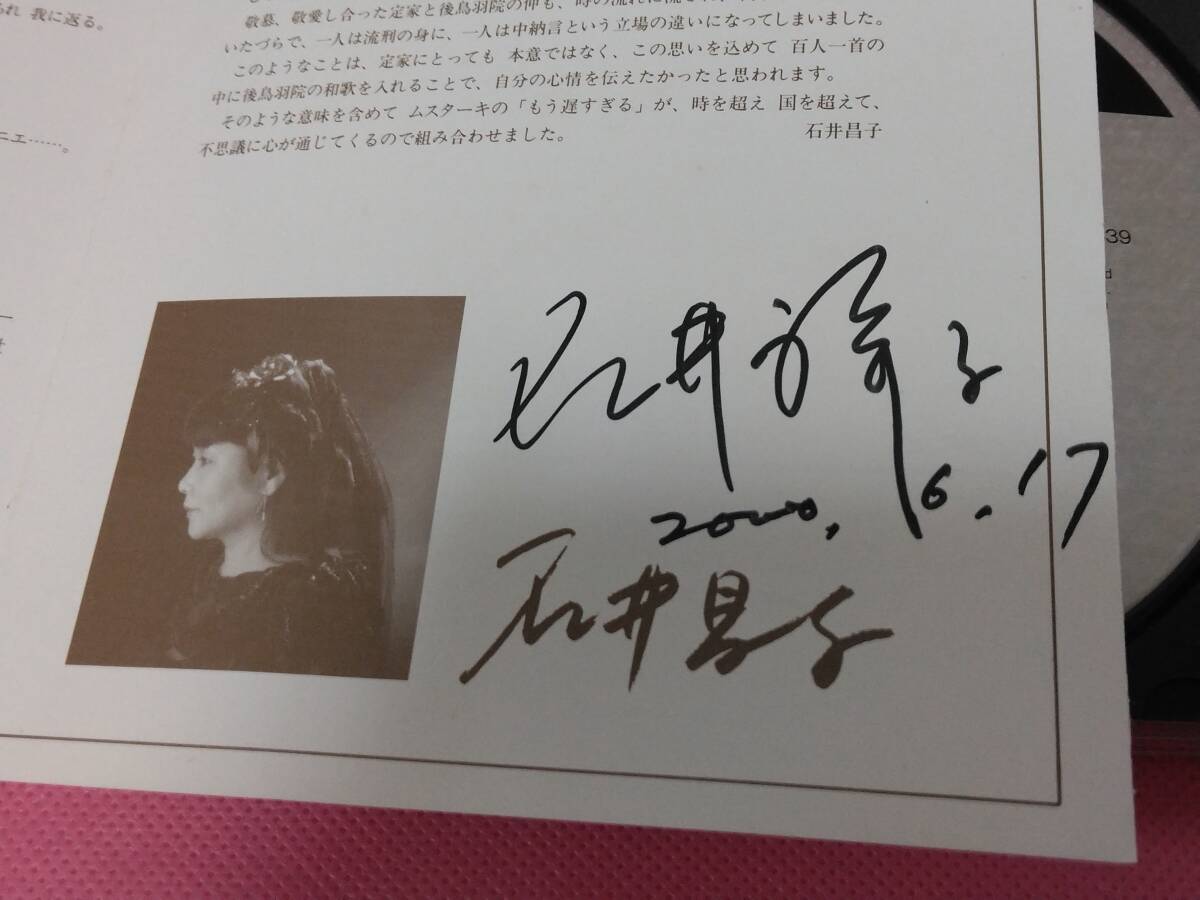 れ 我に返る。
ニエ……。
敬慕、敬愛し合った定家と後鳥羽院の仲も、時の流れに流され、
いたづらで、一人は流刑の身に、一人は中納言という立場の違いになってしまいました。
このようなことは、定家にとっても 本意ではなく、この思いを込めて 百人一首の
中に後鳥羽院の和歌を入れることで、自分の心情を伝えたかったと思われます。
そのような意味を含めて ムスターキの「もう遅すぎる」が、時を超え 国を超えて、
不思議に心が通じてくるので組み合わせました。
石井昌子
39
d
石井
子
2000.6.17
石井昌子